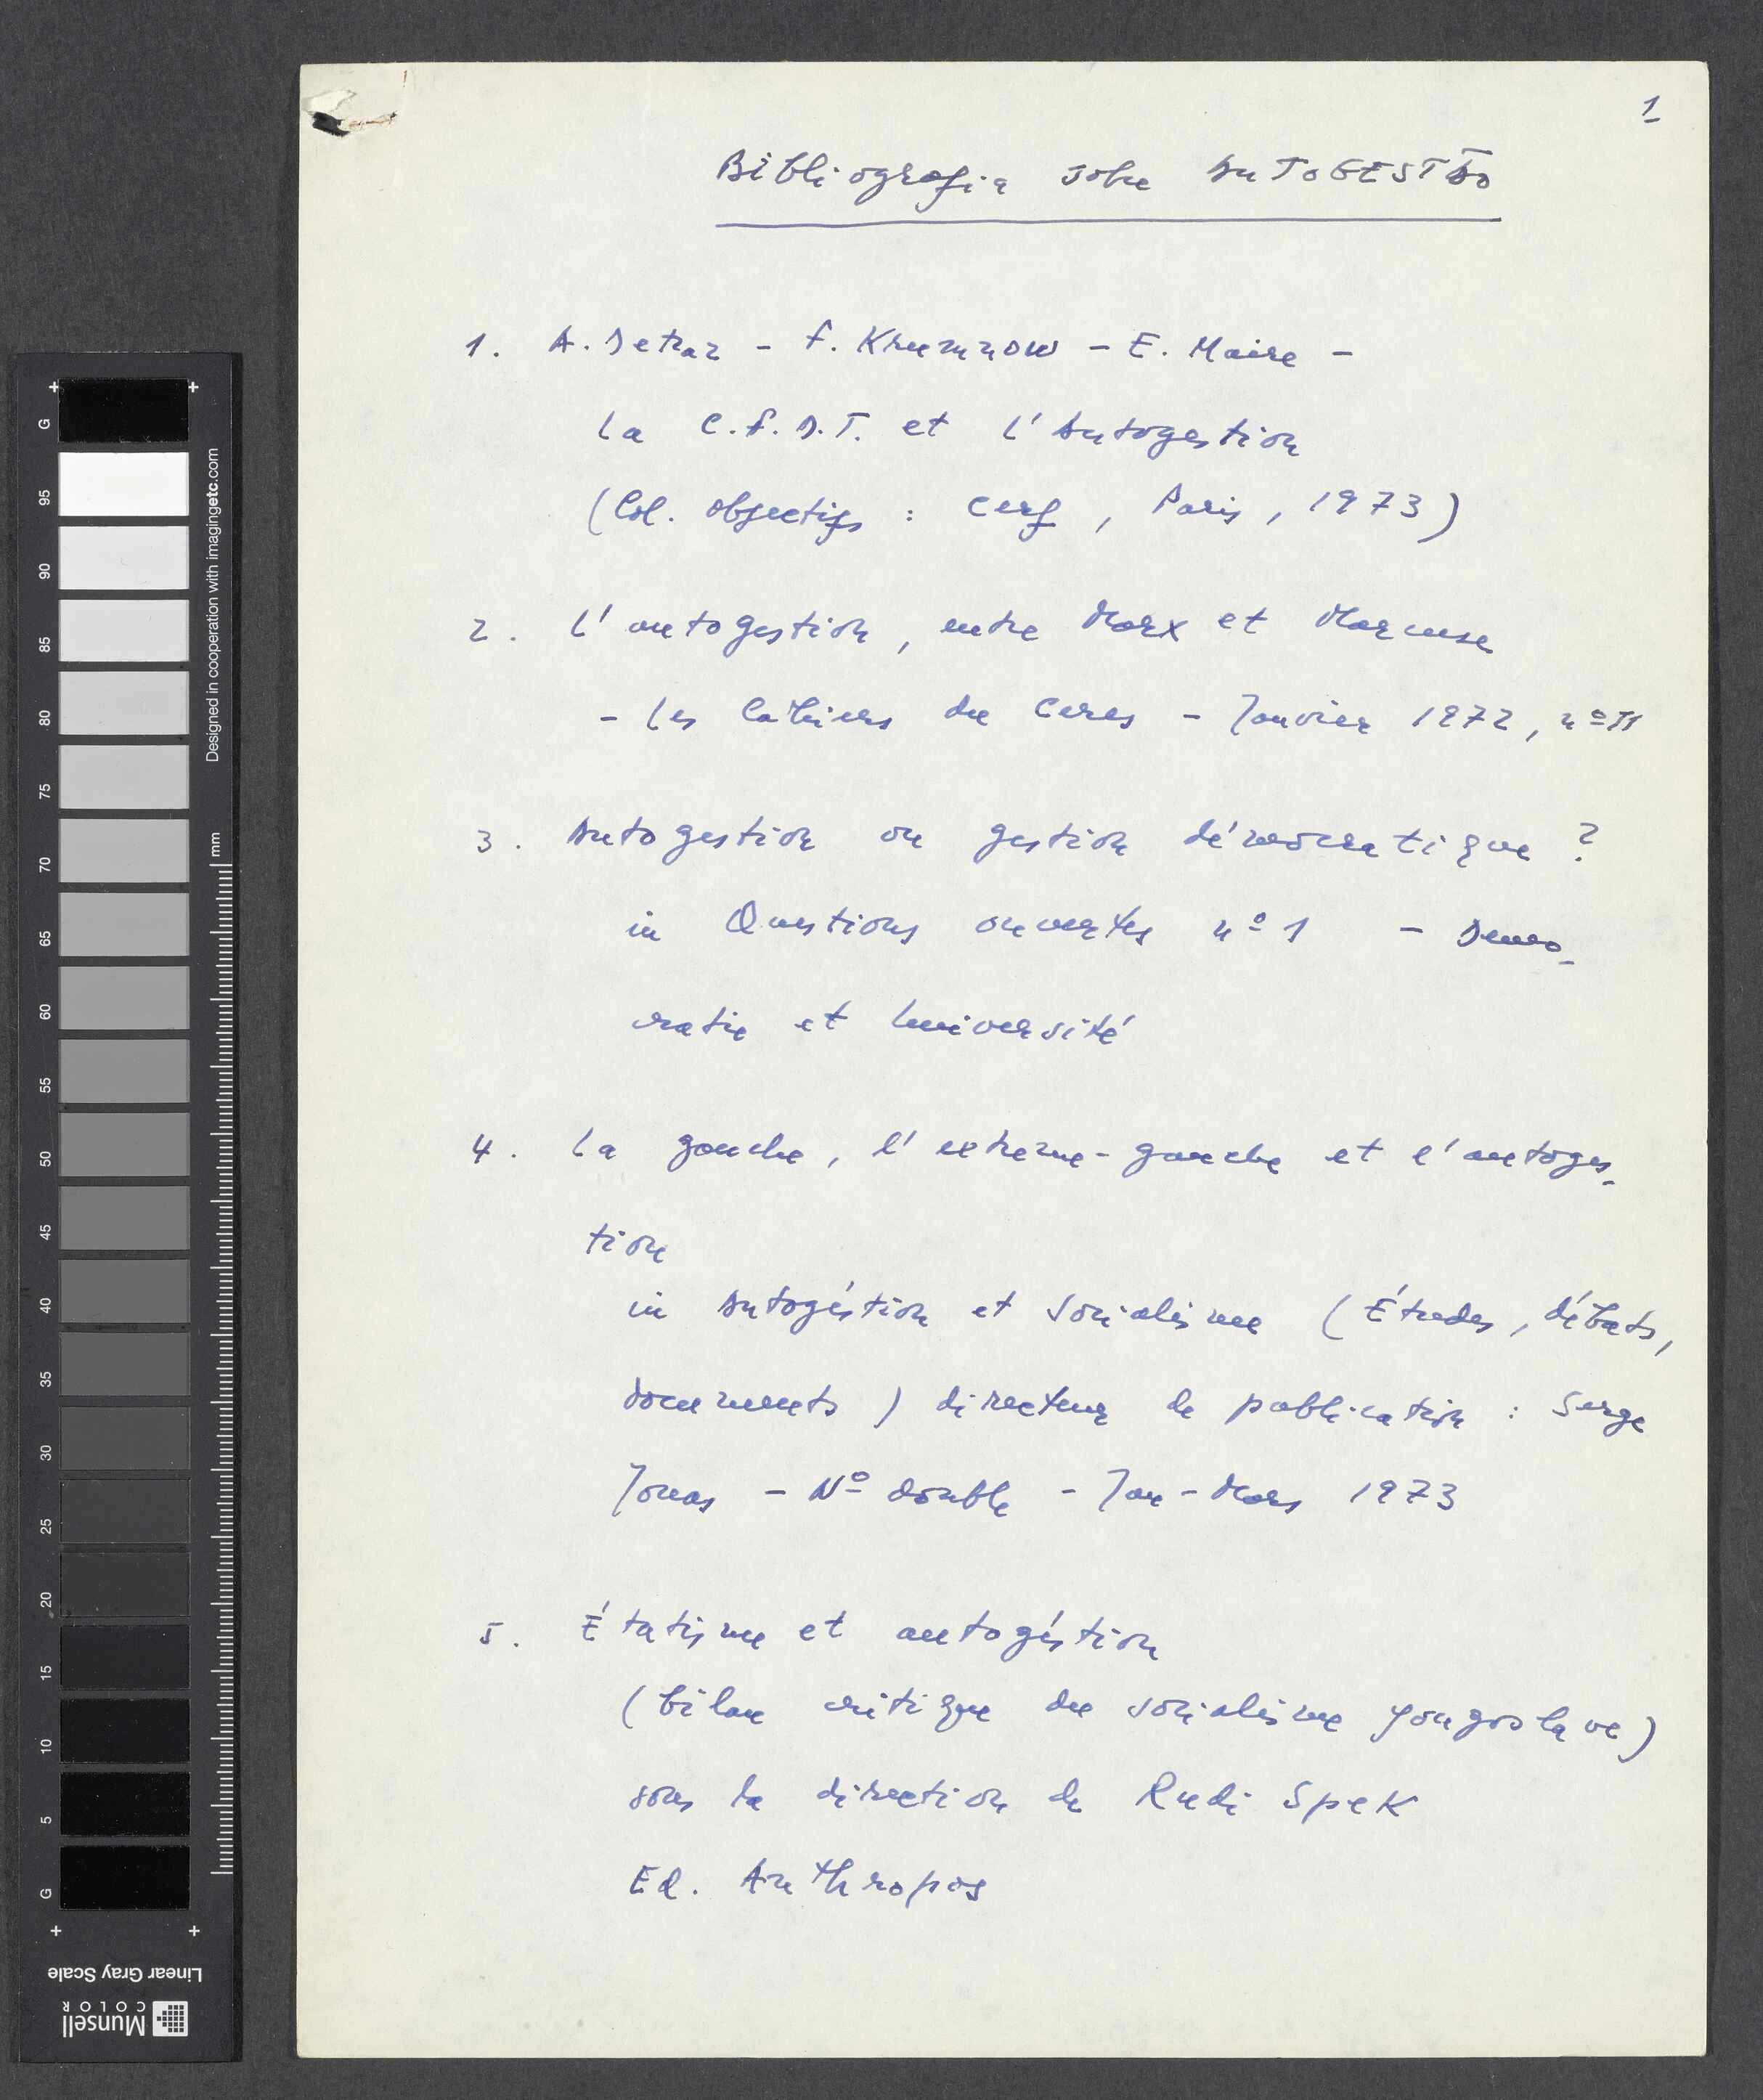 1
Bibliografia sobre AUTOGESTÃO
1. A. Detraz - F. Krumnow - E. Maire -
La C.F.D.T. et l'Autogestion
(Col. objectifs : Cerf, Paris, 1973)
2. L'autogestion, entre Marx et Marcuse
- Les Cahiers du Ceres - Janvier 1972, nº
3. Autogestion ou gestion démocratique ?
in Questions ouvertes nº 1 - Démo-
cratie et Université
4. La gauche, l'extreme-gauche et l'autoges-
tion
in Autogéstion et Socialisme (Études, débats,
documents) directeur de publication : Serge
Jonas - Nº double - Jan-Mars 1973
5. Étatisme et autogéstion
(bilan critique du socialisme yougoslave)
sous la direction de Rudi Spek
Ed. Anthropos
G
95
90
85
80
75
70
65
60
55
50
45
40
35
30
25
20
15
10
5
G
Designed in cooperation with imagingetc.com
mm
Linear Gray Scale
Munsell
COLOR